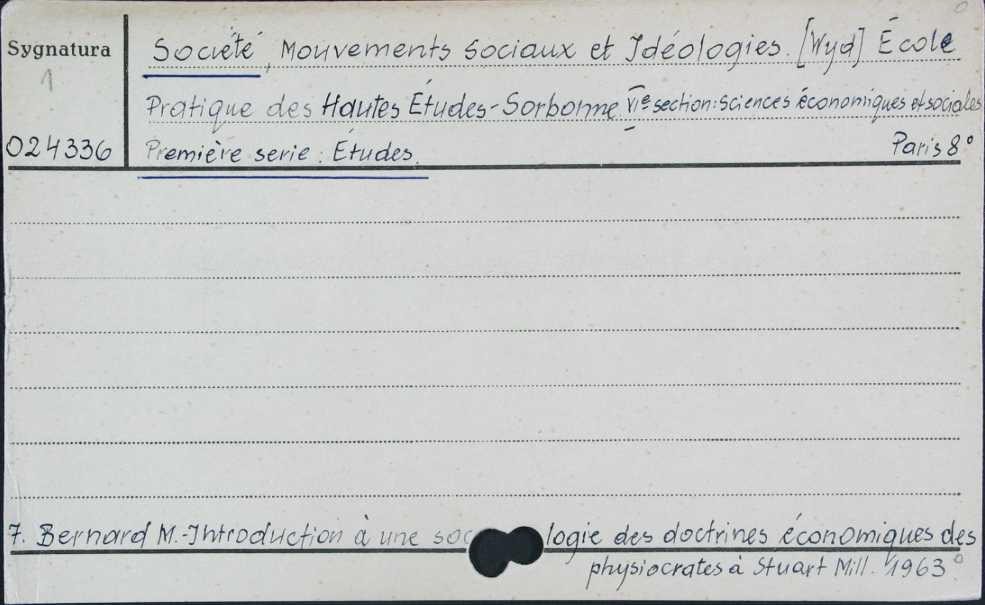 Sygnatura Société, Mouvements sociaux et Idéologies. [Wyd] École
1 Pratique des Hautes Études-Sorbonne. VIe section: Sciences économiques et sociales
024336 Première serie: Études. Paris 8°
7. Bernard M.-Introduction à une soc logie des doctrines économiques des
physiocrates à Stuart Mill. 1963